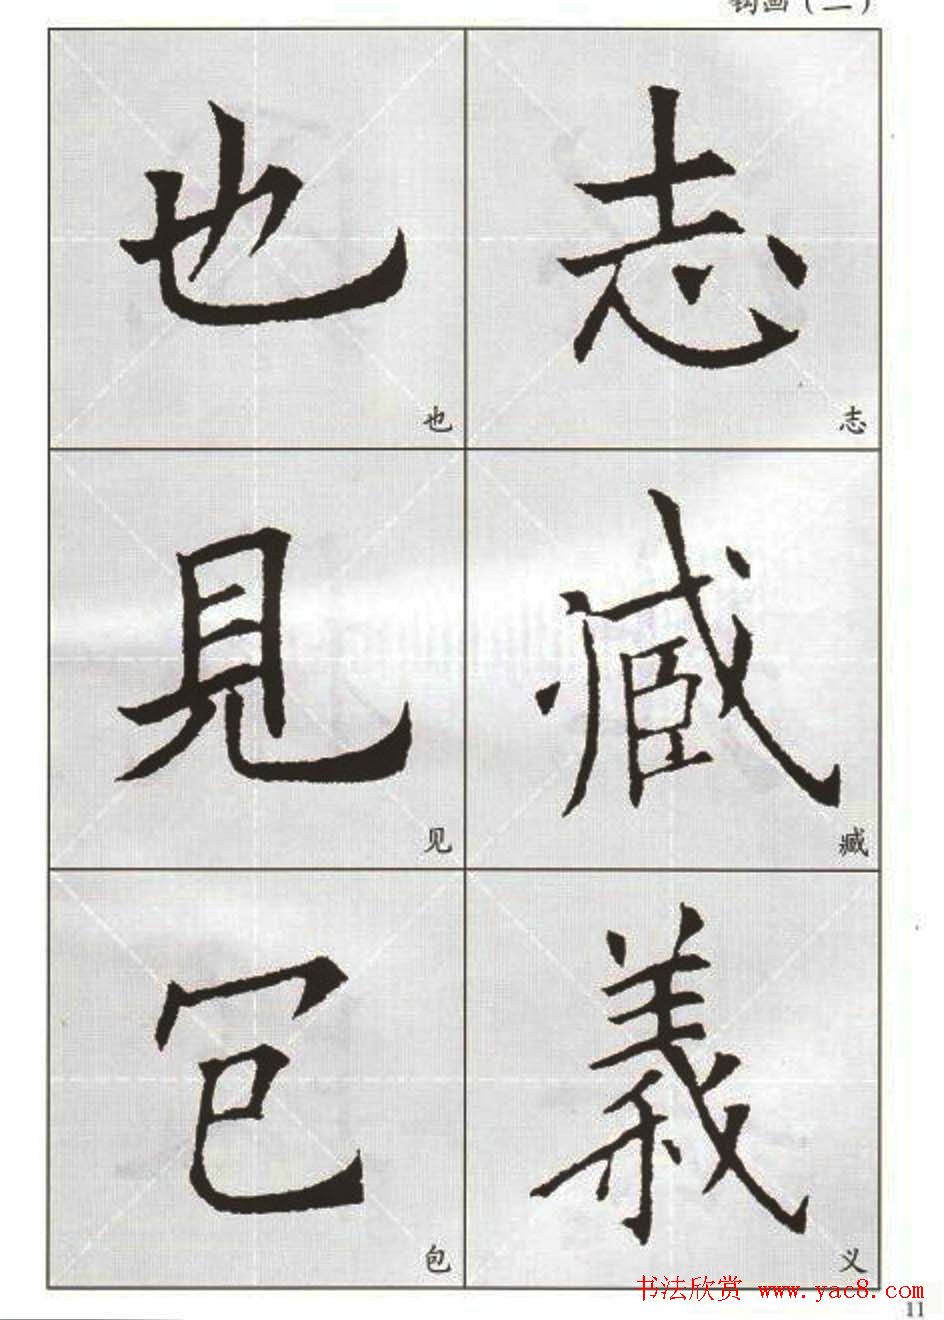 钩画（二）
也 志
也 志
見 臧
见 臧
包 義
包 义
书法欣赏 www.yac8.com
11